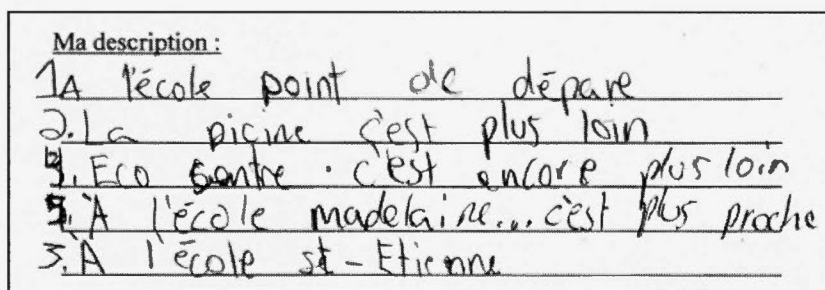 Ma description :
1A l'école point de dépare
2. La picine c'est plus loin
4. Eco sentre . c'est encore plus loin
5. À l'école madelaine... c'est plus proche
3. À l'école st - Etienne